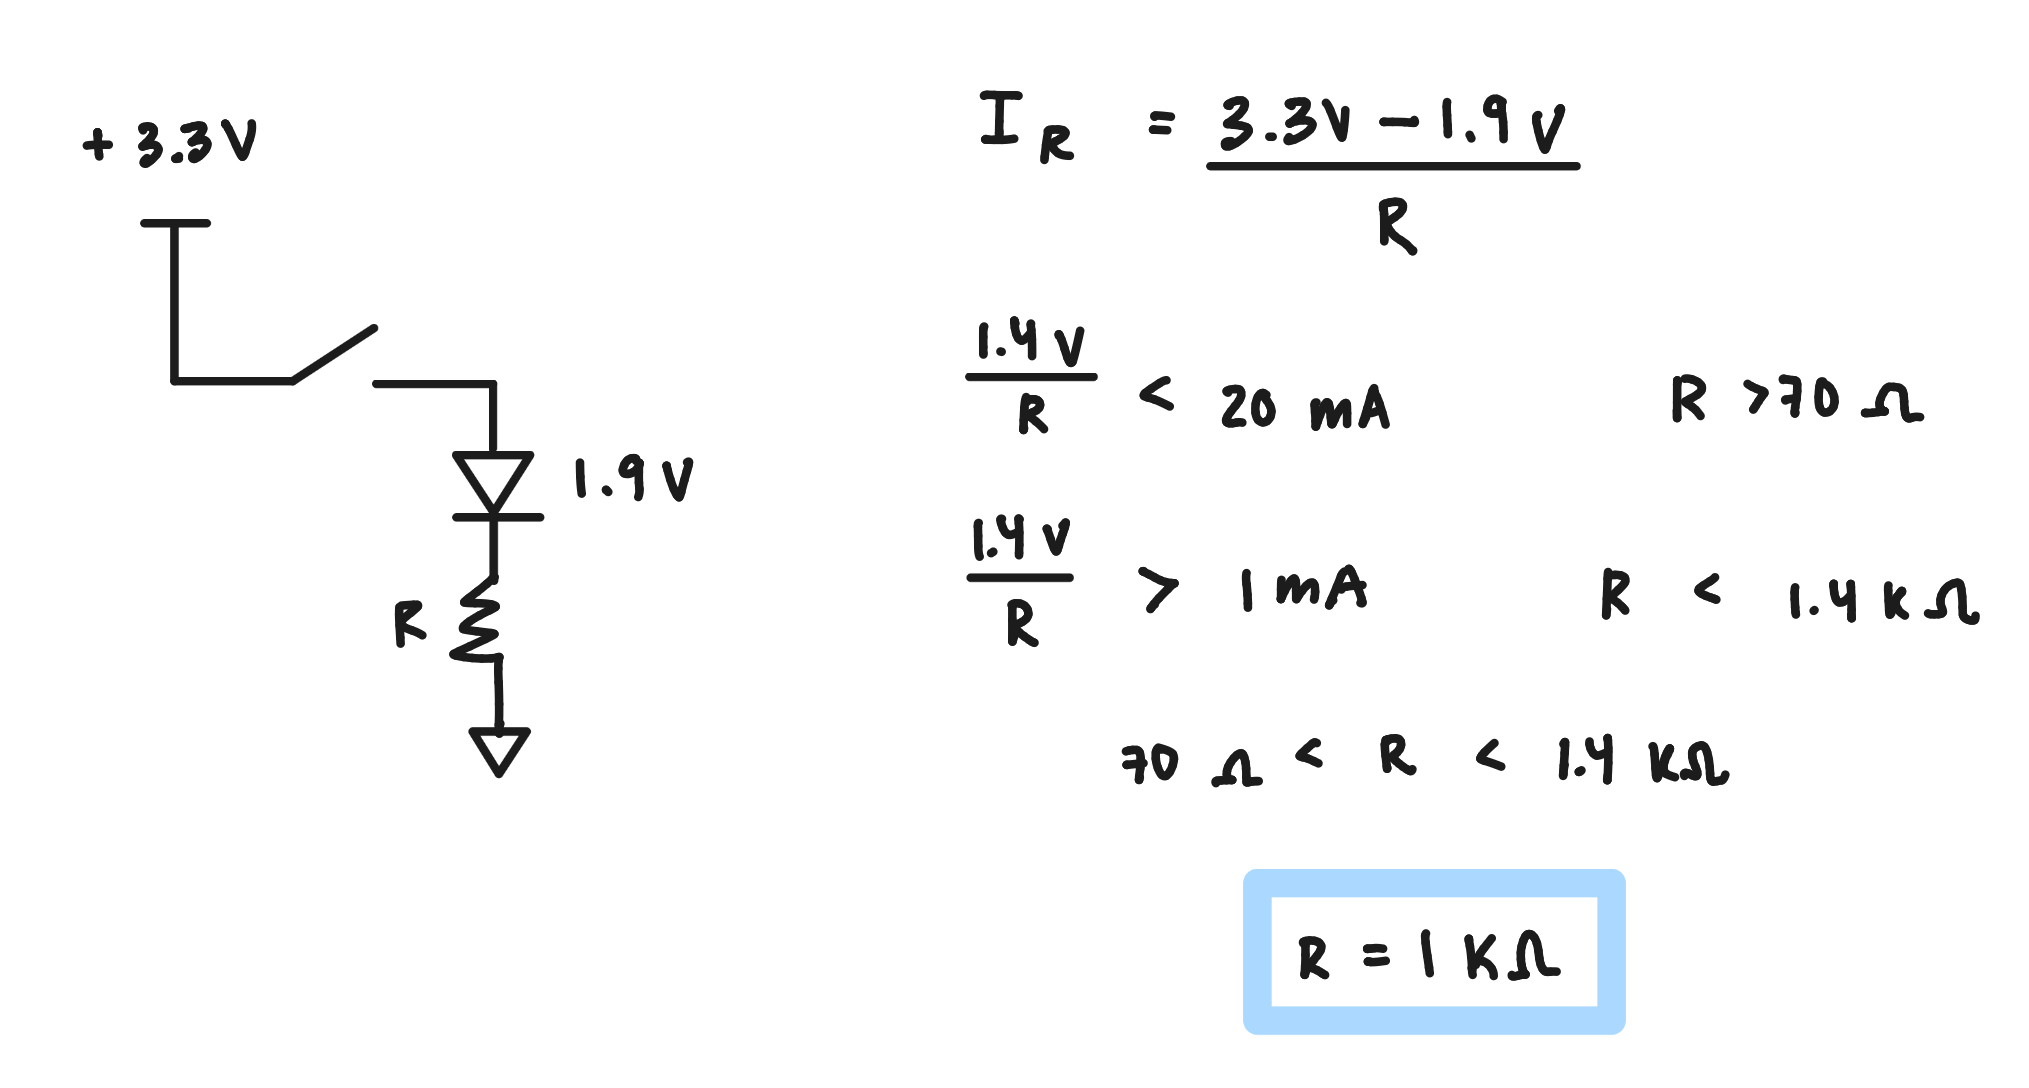 + 3.3V
1.9 V
R
I_R = (3.3V - 1.9V) / R
1.4 V / R < 20 mA    R > 70 Ω
1.4 V / R > 1 mA    R < 1.4 KΩ
70 Ω < R < 1.4 KΩ
R = 1 KΩ